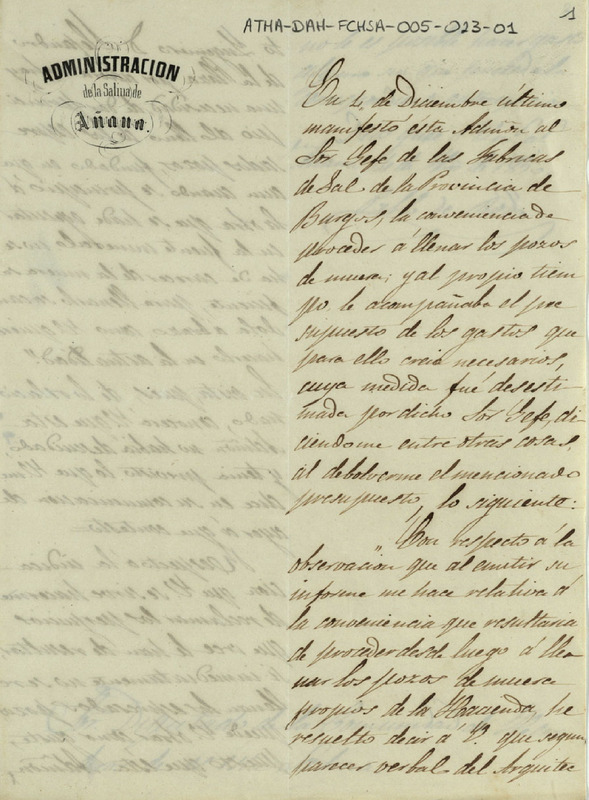 ATHA-DAH-FCHSA-005-023-01
1
ADMINISTRACION
de la Salina de
Añana.
En 4 de Diciembre último
manifestó ésta Admon al
Sor Gefe de las Fabricas
de Sal de la Provincia de
Burgos, la conveniencia de
proceder á llenar los pozos
de muera; y al propio tiem
po le acompañaba el pre
supuesto de los gastos que
para ello creia necesarios,
cuya medida fué desesti
mada por dicho Sor Gefe, di
ciendome entre otras cosas,
al debolverme el mencionado
presupuesto, lo siguiente:
"Con respecto á la
observacion que al emitir su
informe me hace relativa á
la conveniencia que resultaria
de proceder desde luego á lle
nar los pozos de muera
propios de la Hacienda, he
resuelto decir á V. que segun
parecer verbal del Arquitec